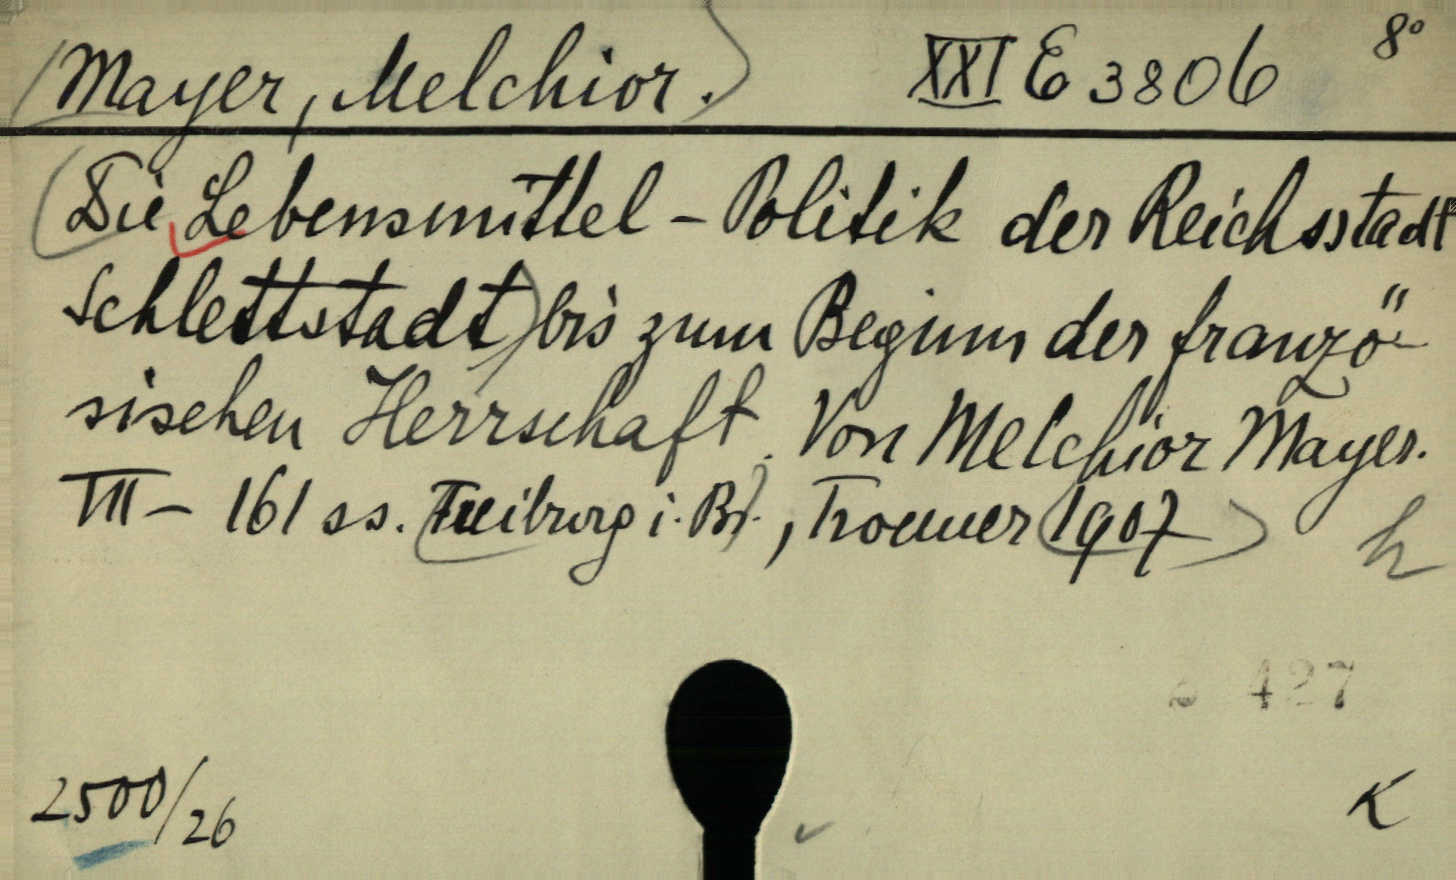 Mayer, Melchior. XXI E 3806 8°
Die Lebensmittel-Politik der Reichsstadt
Schlettstadt bis zum Beginn der franzö-
sischen Herrschaft. Von Melchior Mayer.
VII - 161 ss. Freiburg i. Br., Troemer 1907
h
427
2500/26
K